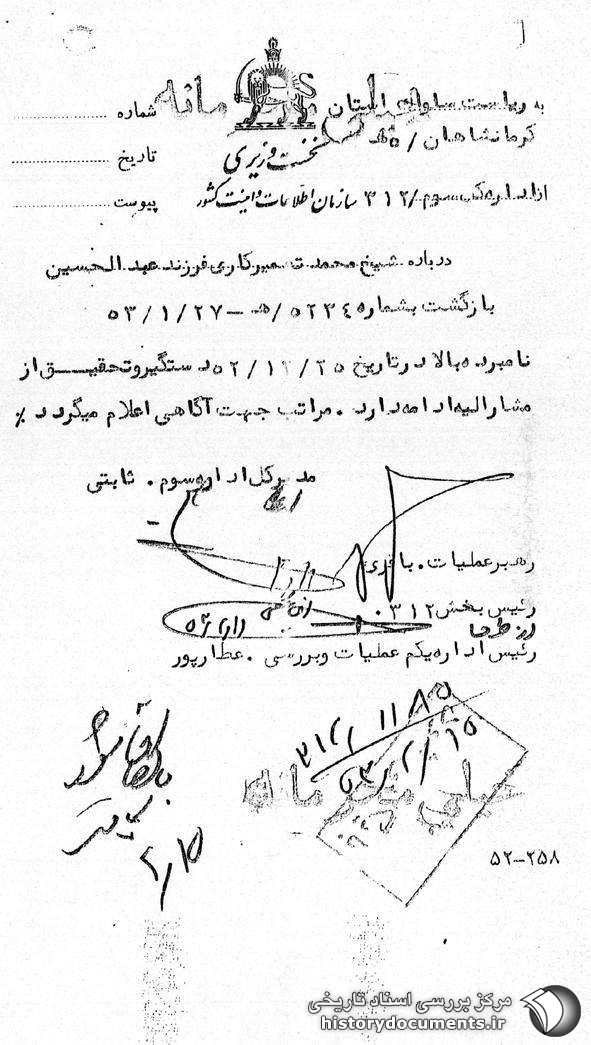 به ریاست ساواک استان
شماره
کرمانشاهان / ه‍
نخست وزیری
تاریخ
از اداره کل سوم / ۳۱۲
سازمان اطلاعات و امنیت کشور
پیوست
خیلی محرمانه
درباره شیخ محمدت میرکاری فرزند عبدالحسین
بازگشت بشماره ۵۲۳۴/ه‍ - ۵۳/۱/۲۷
نامبرده بالا در تاریخ ۵۲/۱۲/۲۵ دستگیر و تحقیق از
مشارالیه ادامه دارد . مراتب جهت آگاهی اعلام میگردد ٪
مدیرکل اداره سوم . ثابتی
رهبر عملیات . باقری
رئیس بخش ۳۱۲ .
از طرف
رئیس اداره یکم عملیات و بررسی . عطارپور
۳۱۲/۱۱۸۵
۵۳/۲/۱۵
خیلی محرمانه
بایگانی شود
۲/۱۵
۵۲-۲۵۸
مرکز بررسی اسناد تاریخی
historydocuments.ir